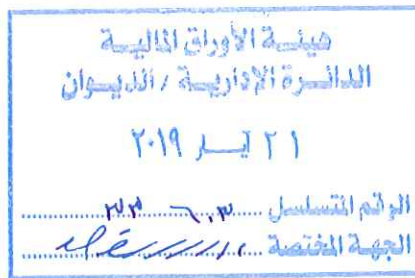 هيئة الأوراق المالية
الدائرة الإدارية / الديوان
٢١ آيار ٢٠١٩
الرقم المتسلسل
الجهة المختصة